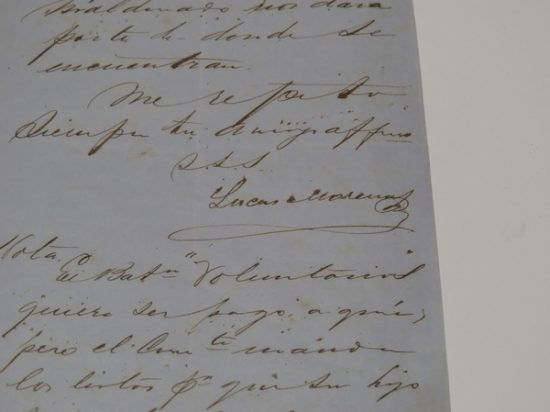 Maldonado nos dara
parte de donde se
encuentran.
Me repito
siempre tu amigo affmo
S.S.S.
Lucas Moreno
Nota. El Batn "Voluntarios"
quiere ser pago aquí,
pero el Comte manda
las listas pa que su hijo